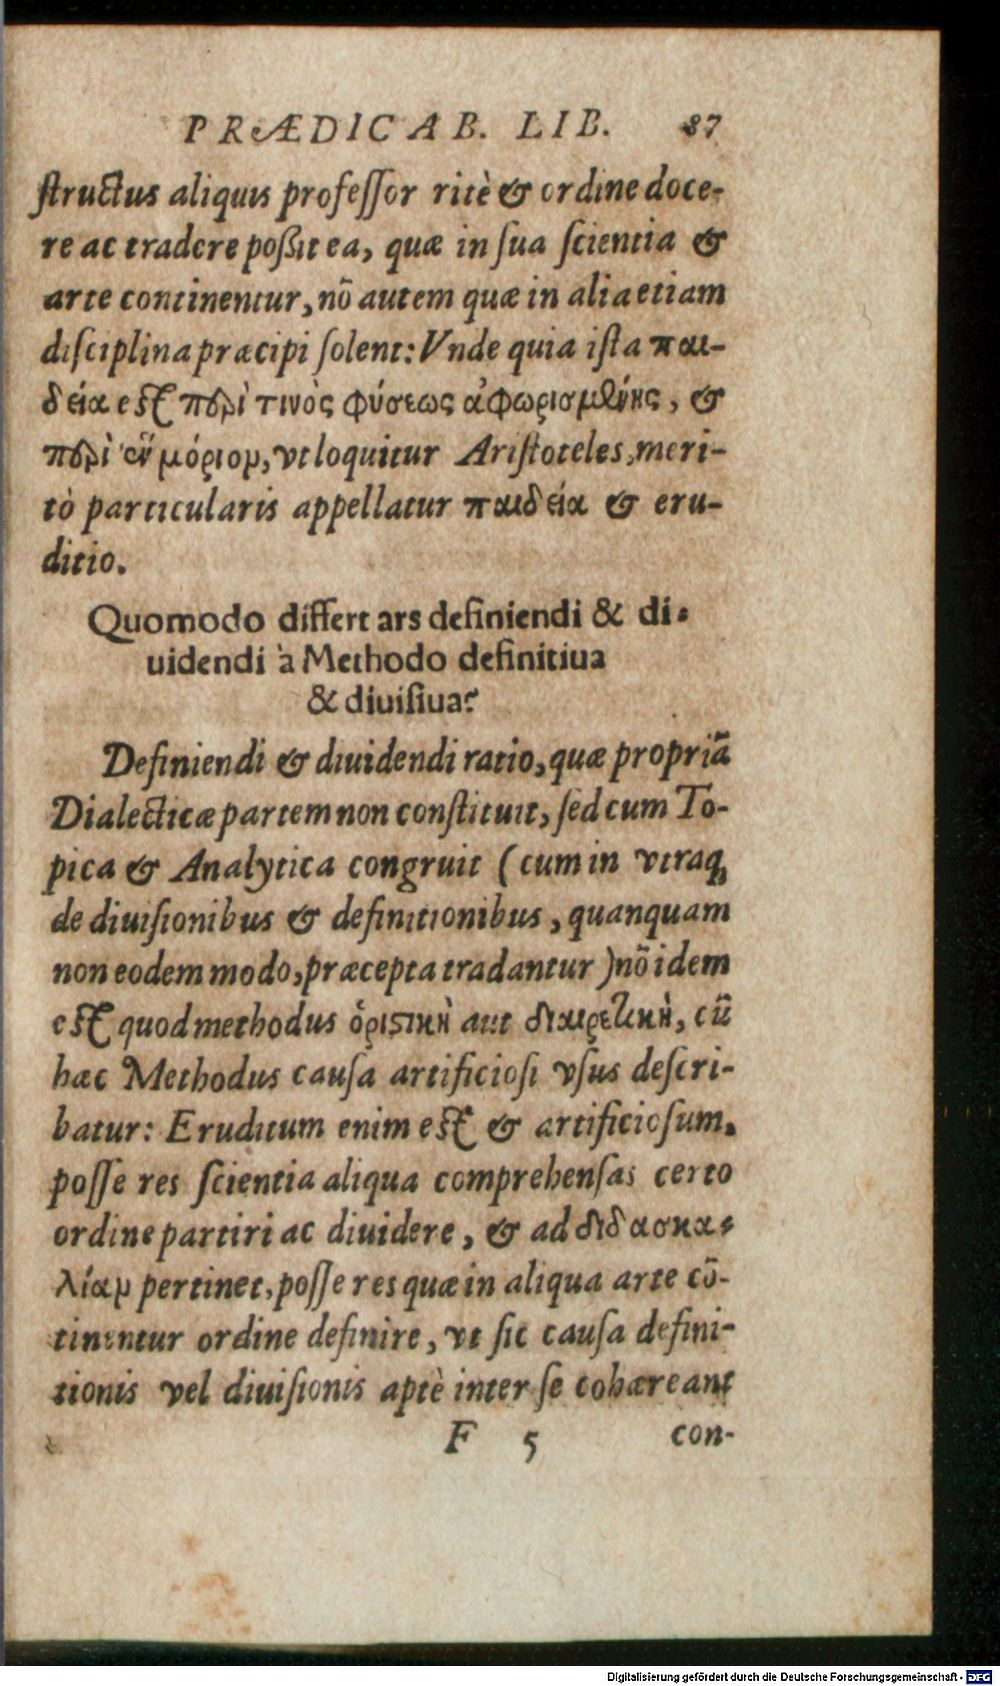 PRÆDICAB. LIB. 87
structus aliquis professor ritè & ordine doce-
re ac tradere poßit ea, quæ in sua scientia &
arte continentur, nõ autem quæ in alia etiam
disciplina præcipi solent: Vnde quia ista παι-
δεία est περὶ τινὸς φύσεως ἀφωρισμένης, &
περὶ ἓν μόριον, vt loquitur Aristoteles, meri-
tò particularis appellatur παιδεία & eru-
ditio.
Quomodo differt ars definiendi & di-
uidendi à Methodo definitiua
& diuisiua?
Definiendi & diuidendi ratio, quæ propriã
Dialecticæ partem non constituit, sed cum To-
pica & Analytica congruit (cum in vtraq;
de diuisionibus & definitionibus, quanquam
non eodem modo, præcepta tradantur) nõ idem
est quod methodus ὁριστικὴ aut διαιρετικὴ, cũ
hæc Methodus causa artificiosi vsus descri-
batur: Eruditum enim est & artificiosum,
posse res scientia aliqua comprehensas certo
ordine partiri ac diuidere, & ad διδασκα-
λίαν pertinet, posse res quæ in aliqua arte cõ-
tinentur ordine definire, vt sic causa defini-
tionis vel diuisionis aptè inter se cohæreant
F 5 con-
Digitalisierung gefördert durch die Deutsche Forschungsgemeinschaft - DFG